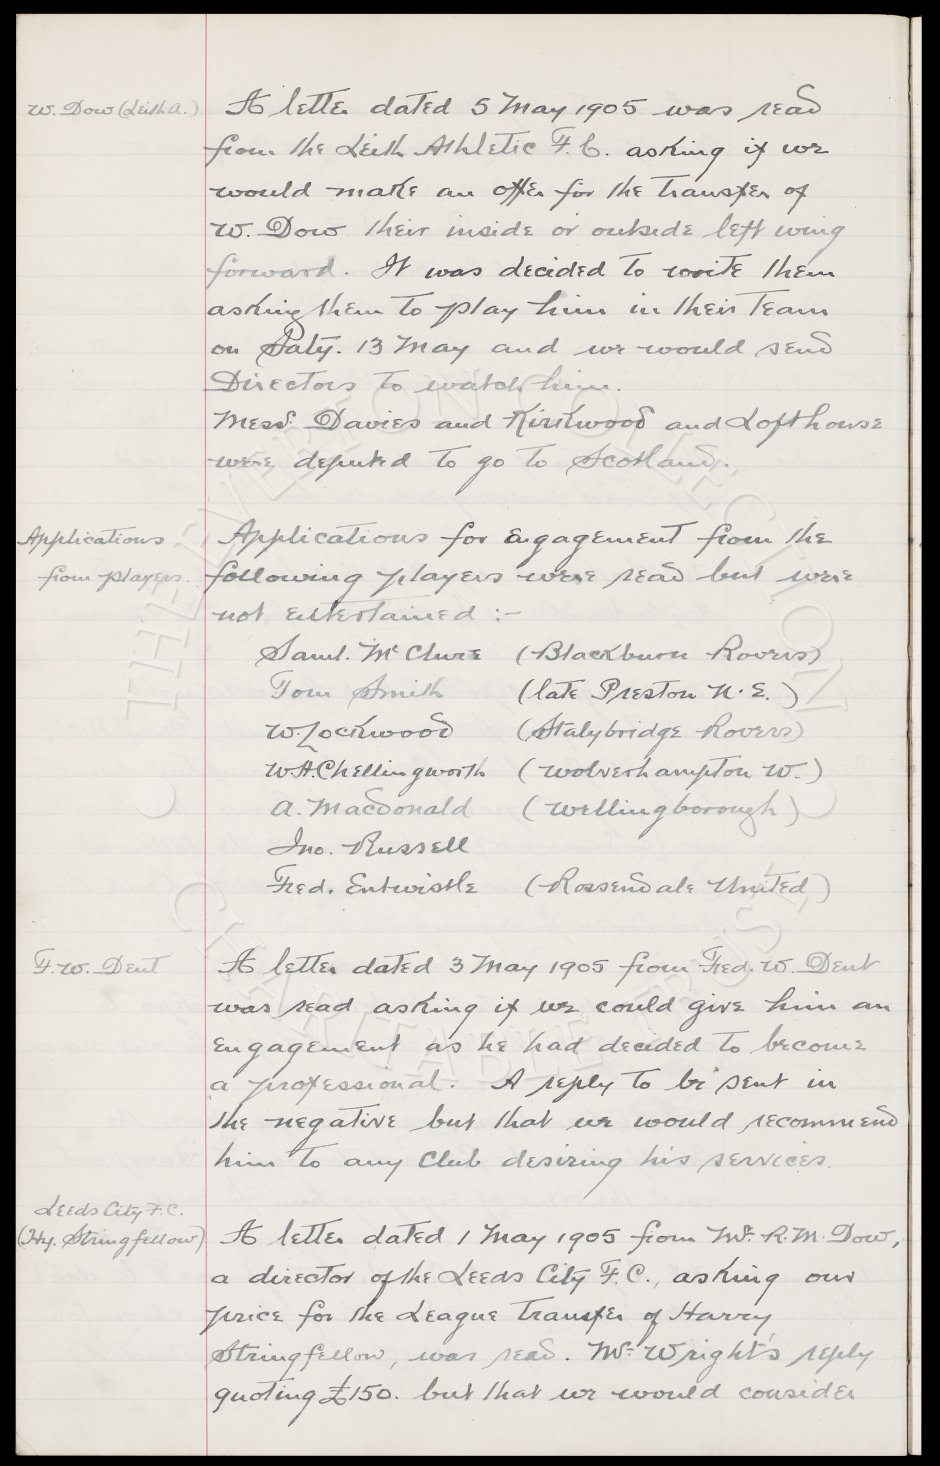 W. Dow (Leith A.)
A letter dated 5 May 1905 was read
from the Leith Athletic F. C. asking if we
would make an offer for the transfer of
W. Dow their inside or outside left wing
forward. It was decided to write them
asking them to play him in their Team
on Saty. 13 May and we would send
Directors to watch him.
Messs. Davies and Kirkwood and Lofthouse
were deputed to go to Scotland.
Applications
from players.
Applications for engagement from the
following players were read but were
not entertained :-
Saml. McClure (Blackburn Rovers)
Tom Smith (late Preston N. E.)
W. Lockwood (Stalybridge Rovers)
W.H. Chellingworth (Wolverhampton W.)
A. MacDonald (Wellingborough)
Jno. Russell
Fred. Entwistle (Rossendale United)
F. W. Dent
A letter dated 3 May 1905 from Fred. W. Dent
was read asking if we could give him an
engagement as he had decided to become
a professional. A reply to be sent in
the negative but that we would recommend
him to any Club desiring his services.
Leeds City F.C.
(Hy. Stringfellow)
A letter dated 1 May 1905 from Mr. R. M. Dow,
a director of the Leeds City F. C., asking our
price for the League Transfer of Harry
Stringfellow, was read. Mr. Wright's reply
quoting £150. but that we would consider
THE EVERTON COLLECTION
CHARITABLE TRUST